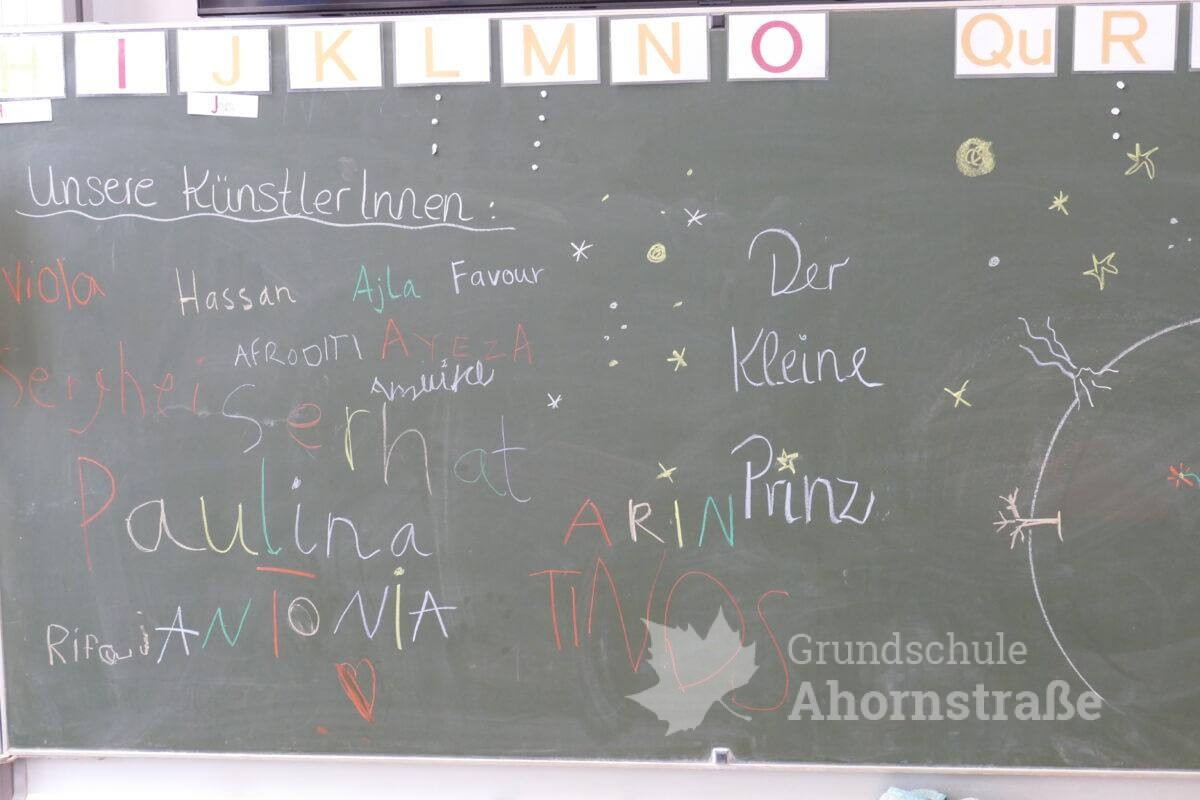 H I J K L M N O Qu R
Unsere KünstlerInnen:
Viola Hassan Ajla Favour
AFRODITI AYEZA
Serghei
Serhat
Paulina
ARIN
Rifai ANTONIA
TINOS
Der
Kleine
Prinz
Grundschule
Ahornstraße